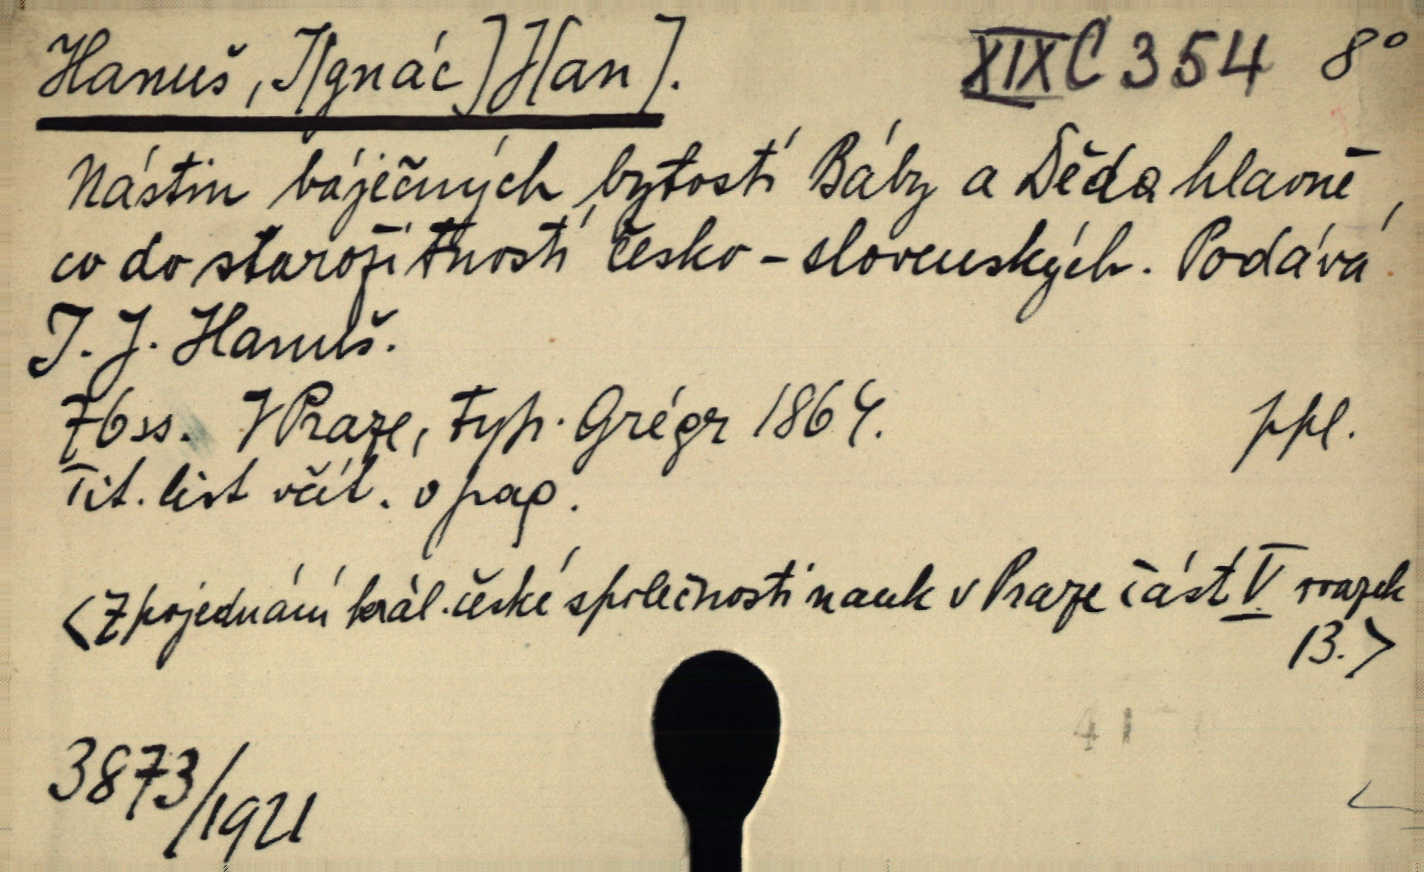 Hanuš, I[gnác] J[an].
XIX C 354 8°
Nástin báječných bytostí Báby a Děda hlavně
co do starožitností česko-slovenských. Podává
I. J. Hanuš.
76 ss. V Praze, typ. Grégr 1864. ppl.
Tit. list včít. v pag.
<Z pojednání král. české společnosti nauk v Praze část V. svazek
13.>
41
3873/1921